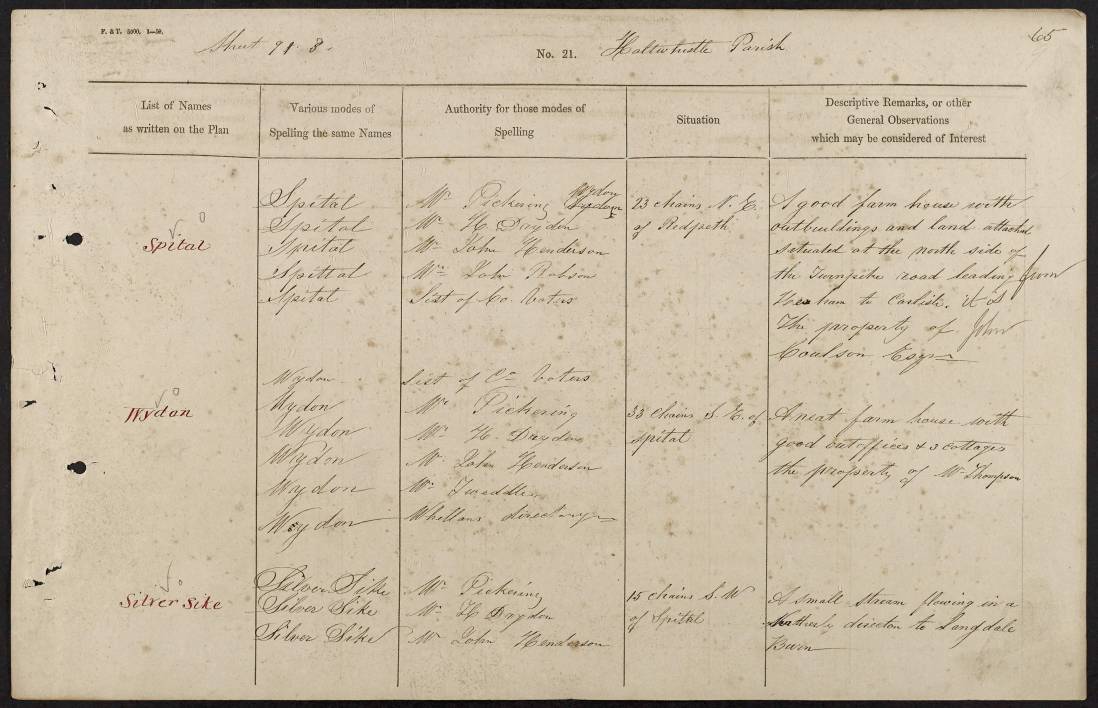 F. & T. 5000. 1—59.
Sheet 91. 8.
No. 21.
Haltwhistle Parish
65
List of Names
as written on the Plan
Various modes of
Spelling the same Names
Authority for those modes of
Spelling
Situation
Descriptive Remarks, or other
General Observations
which may be considered of Interest
Spital
Spital
Spital
Spital
Spittal
Spital
Mr. Pickering Wydon
Mr. H. Drydon
Mr. John Henderson
Mr. John Robson
List of Co. Voters
23 chains N. E.
of Redpeth
A good farm house with
outbuildings and land attached
situated at the north side of
the Turnpike road leading from
Hexham to Carlisle. it is
The property of John
Coulson Esqr
Wydon
Wydon
Wydon
Wydon
Wydon
Wydon
Wydon
List of Co. Voters
Mr. Pickering
Mr. H. Drydon
Mr. John Henderson
Mr. Tweddle
Whellans directory
33 chains S. E. of
spital
A neat farm house with
good outoffices & 3 cottages
the property of Mr Thompson
Silver Sike
Silver Sike
Silver Sike
Silver Sike
Mr. Pickering
Mr. H. Drydon
Mr. John Henderson
15 chains S. W
of Spittal
A small stream flowing in a
direction to Langdale
Burn